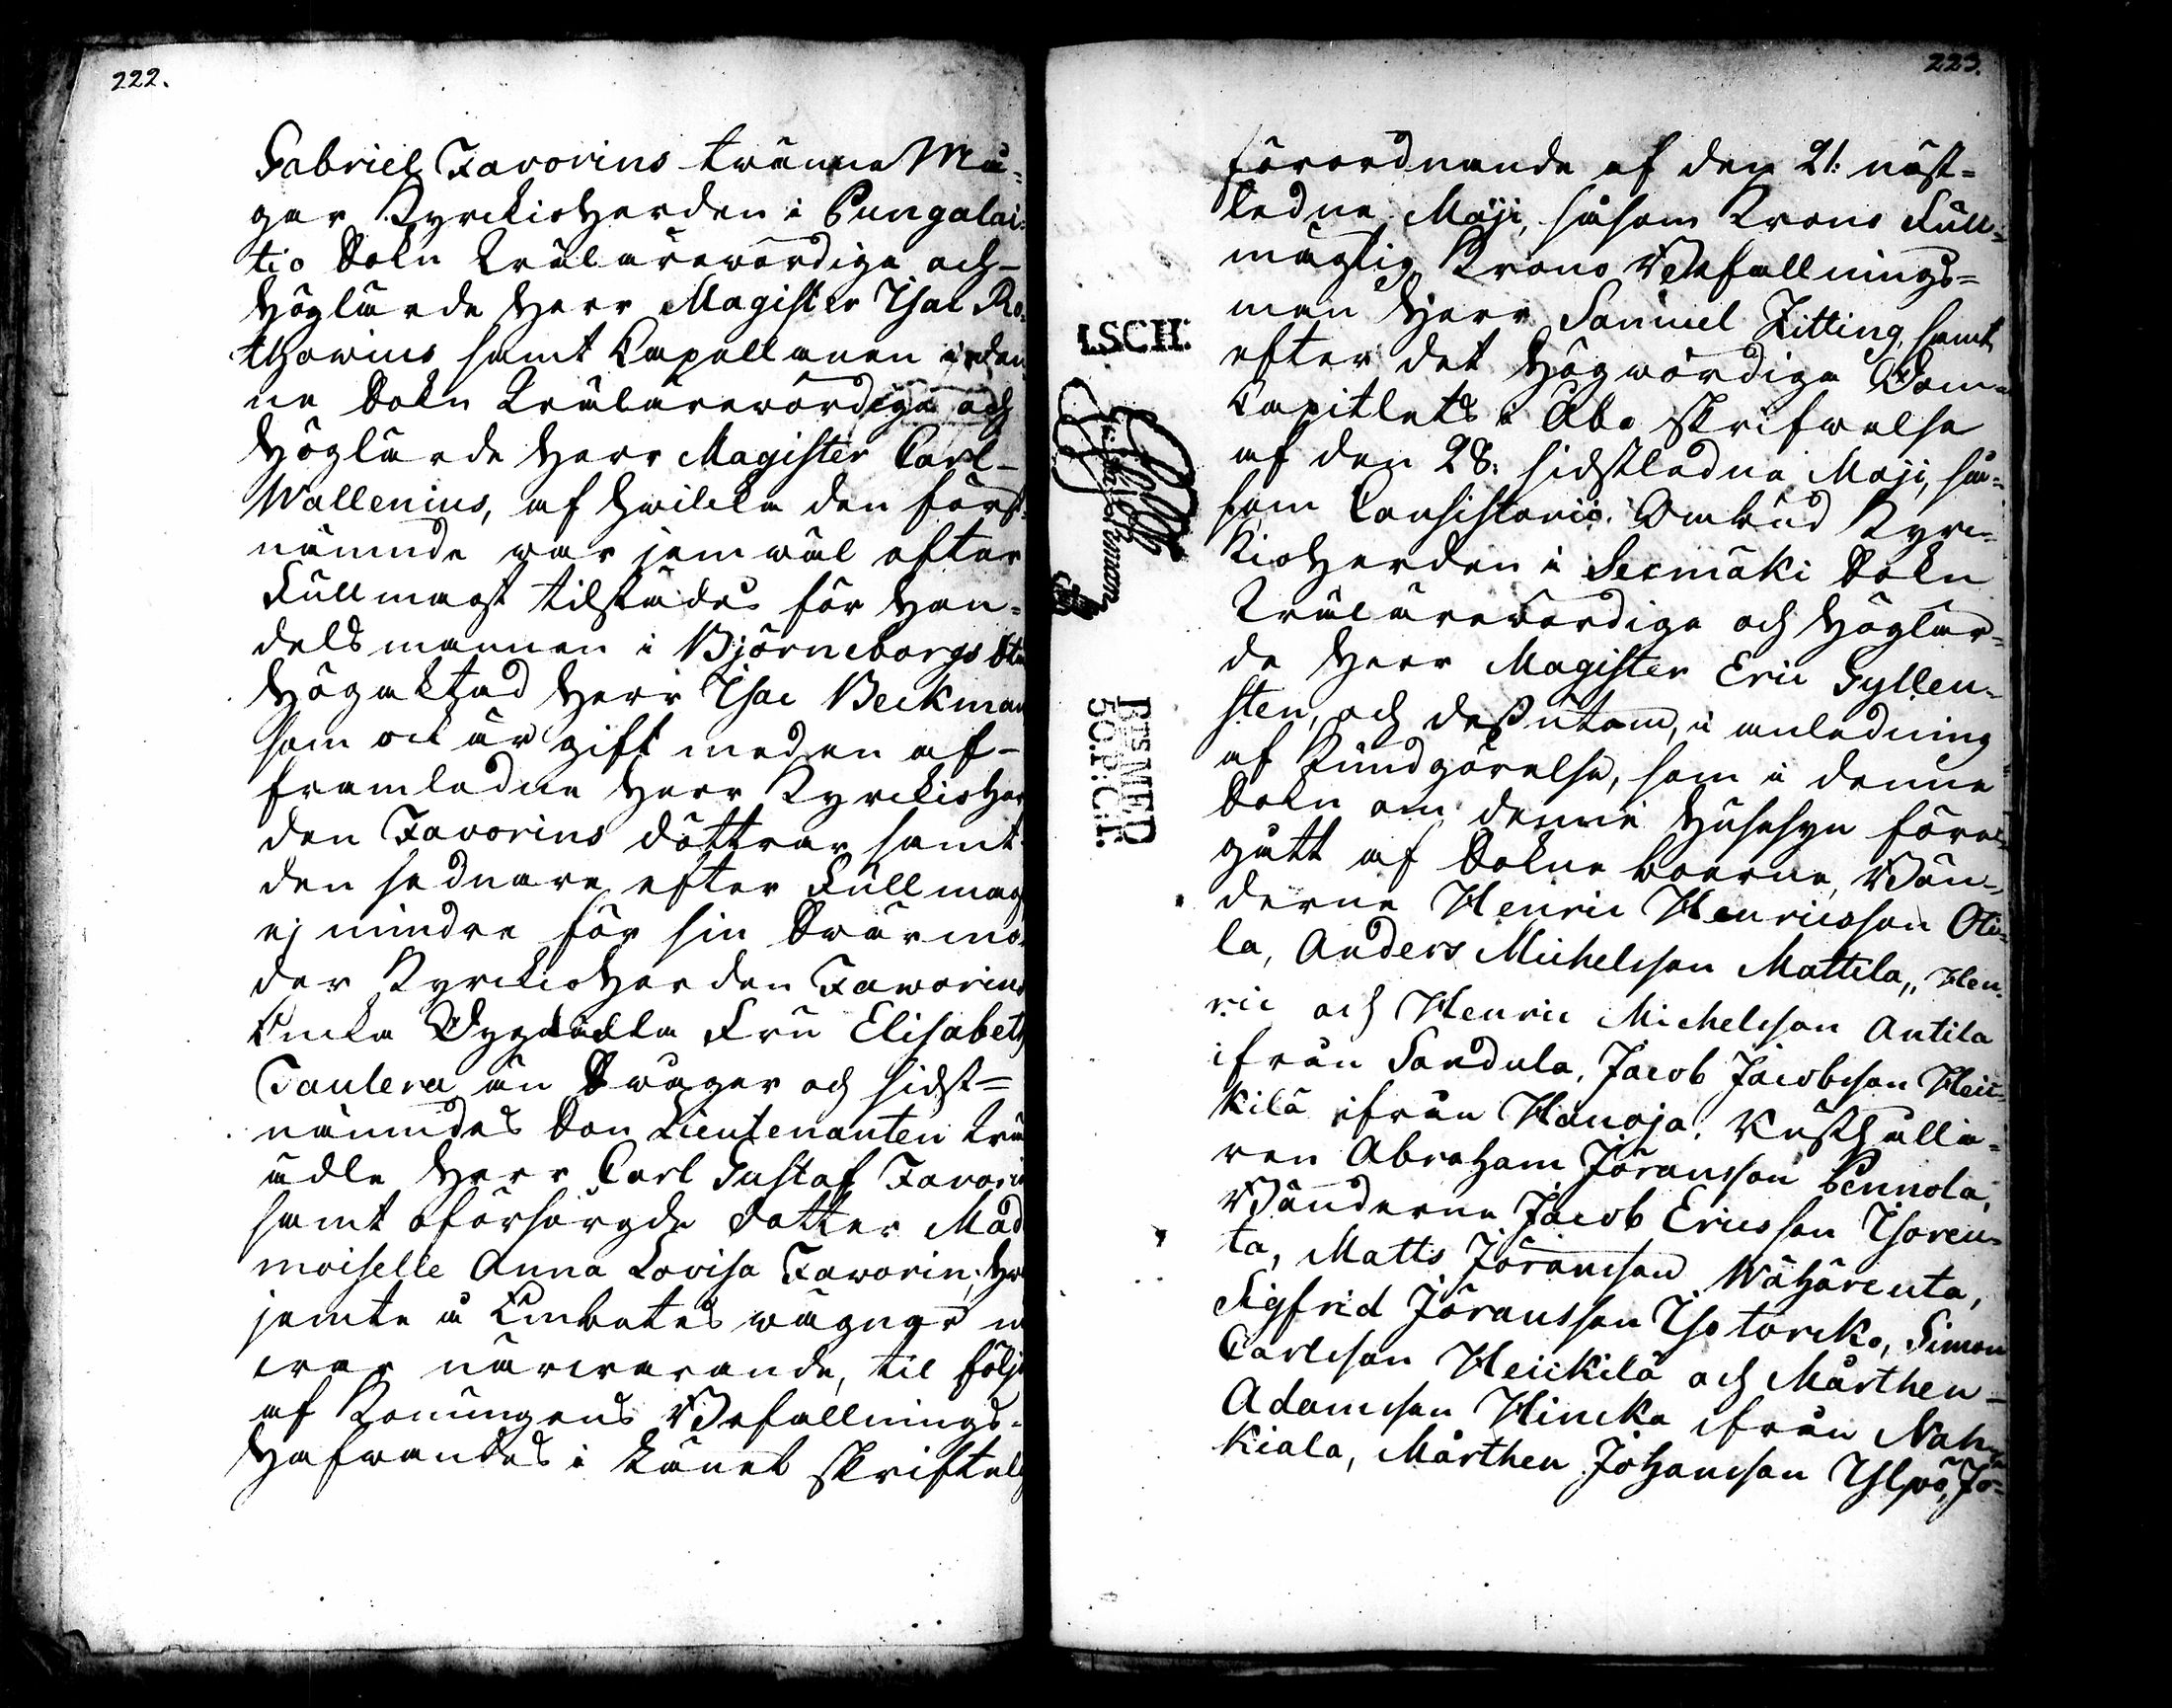 222.
Gabriel Favorins twänne Må-
gar Kyrckioherden i Pungalai-
tio Sokn Wälärewördige och
Höglärde Herr Magister Isac Ro-
thovius samt Capellanen i den-
ne Sokn Wälärewördige och
Höglärde Herr Magister Carl
Wallenius, af hvilcka den först-
nämnde var jemwäl efter
Fullmagt tilstädes för Han-
delsmannen i Björneborgs Stad
Högaktad Herr Isac Beckman
som ock är gift med en af
framledne Herr Kyrckioher-
den Favorins döttrar samt
den sednare efter Fullmagt
ej mindre för sin Swärmo-
der Kyrckioherden Faworins
Encka Dygdädla Fru Elisabeth
Taulera än Swåger och sidst-
nämndes Son Lieutenanten Wäl-
ädle Herr Carl Gustaf Favorin
samt oförsörgde dotter Mad-
moiselle Anna Lovisa Faworin,
jemte å Embetes wägnar
war närwarande, til följe
af Konungens Befallnings-
Hafwandes i Länet skriftelig
223.
förordnande af den 21: näst-
ledne Maji, såsom Krono Full-
mägtig Krono Befallnings-
man Herr Samuel Zitting, samt
efter det Högwördige Dom-
Capitlets i Åbo skrifwelse
af den 28: sidstledne Maji, så-
som Consistorii Ombud Kyrc-
kioherden i Sexmäki Sokn
Wälärewördige och Höglär-
de Herr Magister Eric Gyllen-
sten, och dessutom, i anledning
af Kundgörelse, som i denne
Sokn om denne Husesyn före-
gått af Sokneboerne, Bön-
derne Henric Henricsson Oti-
la, Anders Michelsson Mattila, Hen-
ric och Henric Michelsson Antila
ifrån Sandula, Jacob Jacobsson Heic-
kilä ifrån Hanoja, Rusthålla-
ren Abraham Jöransson Pennola,
Bönderne Jacob Ericsson Isoren-
ta, Matts Jöransson Wähärenta,
Sigfrid Jöransson Isotorcko, Simon
Carlsson Heickilä och Mårthen
Adamsson Hincka ifrån Nah-
kiala, Mårthen Johansson Ylpö, Jo-
I.SCH:
Bts MED
50.P:C:T.